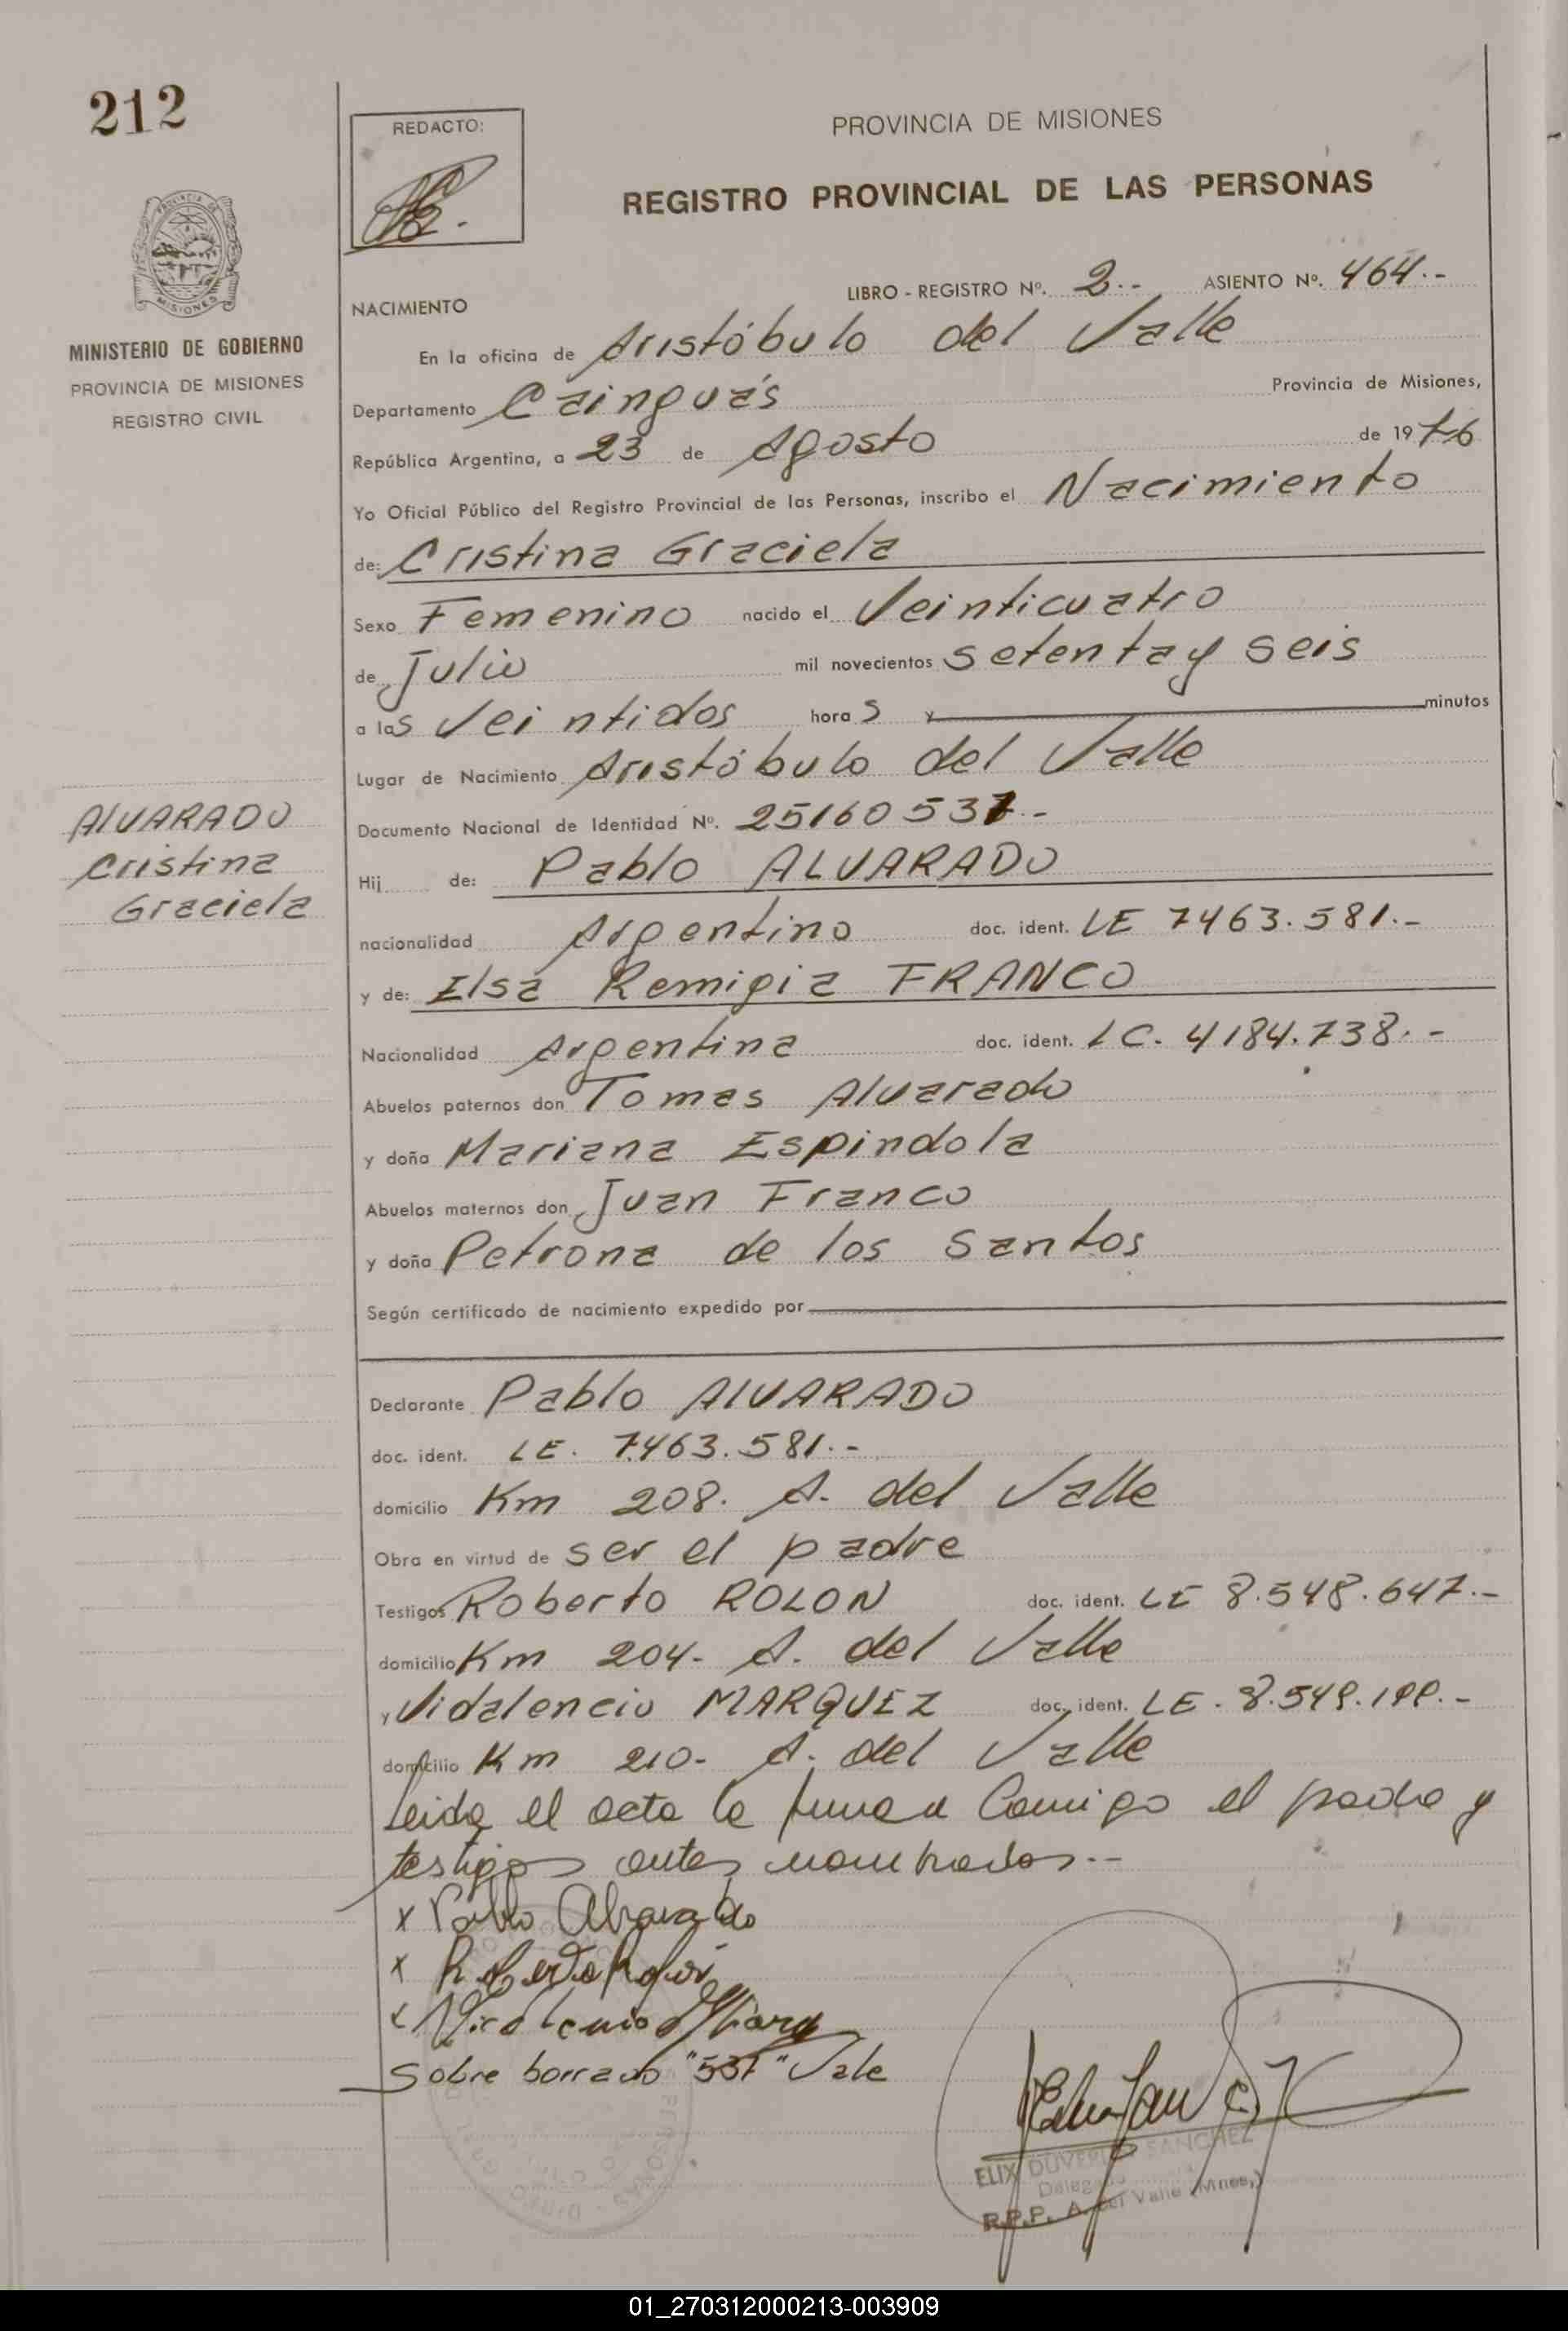 212
REDACTO:
PROVINCIA DE MISIONES
REGISTRO PROVINCIAL DE LAS PERSONAS
MINISTERIO DE GOBIERNO
PROVINCIA DE MISIONES
REGISTRO CIVIL
LIBRO - REGISTRO Nº. 2.- ASIENTO Nº. 464.-
NACIMIENTO
En la oficina de Aristóbulo del Valle
Departamento Cainguás Provincia de Misiones,
República Argentina, a 23 de Agosto de 1976
Yo Oficial Público del Registro Provincial de las Personas, inscribo el Nacimiento
de: Cristina Graciela
Sexo Femenino nacido el Veinticuatro
de Julio mil novecientos setenta y seis
a las Veintidos horas y minutos
Lugar de Nacimiento Aristóbulo del Valle
ALVARADO
Cristina
Graciela
Documento Nacional de Identidad Nº. 25160537.-
Hij de: Pablo ALVARADO
nacionalidad Argentino doc. ident. LE 7463.581.-
y de: Elsa Remigia FRANCO
Nacionalidad Argentina doc. ident. LC. 4184.738.-
Abuelos paternos don Tomas Alvarado
y doña Mariana Espindola
Abuelos maternos don Juan Franco
y doña Petrona de los Santos
Según certificado de nacimiento expedido por
Declarante Pablo ALVARADO
doc. ident. LE. 7463.581.-
domicilio Km 208. A. del Valle
Obra en virtud de ser el padre
Testigos Roberto ROLON doc. ident. LE 8.548.647.-
domicilio Km 204- A. del Valle
y Vidalencio MARQUEZ doc. ident. LE. 8.549.199.-
domicilio Km 210- A. del Valle
Leida el acta la firman Conmigo el padre y
testigos antes nombrados.-
x Pablo Alvarado
x Roberto Rolón
x
Sobre borrado "537" Vale
ELIX DUVERLI SANCHEZ
R.P.P. A. del Valle (Mnes.)
01_270312000213-003909